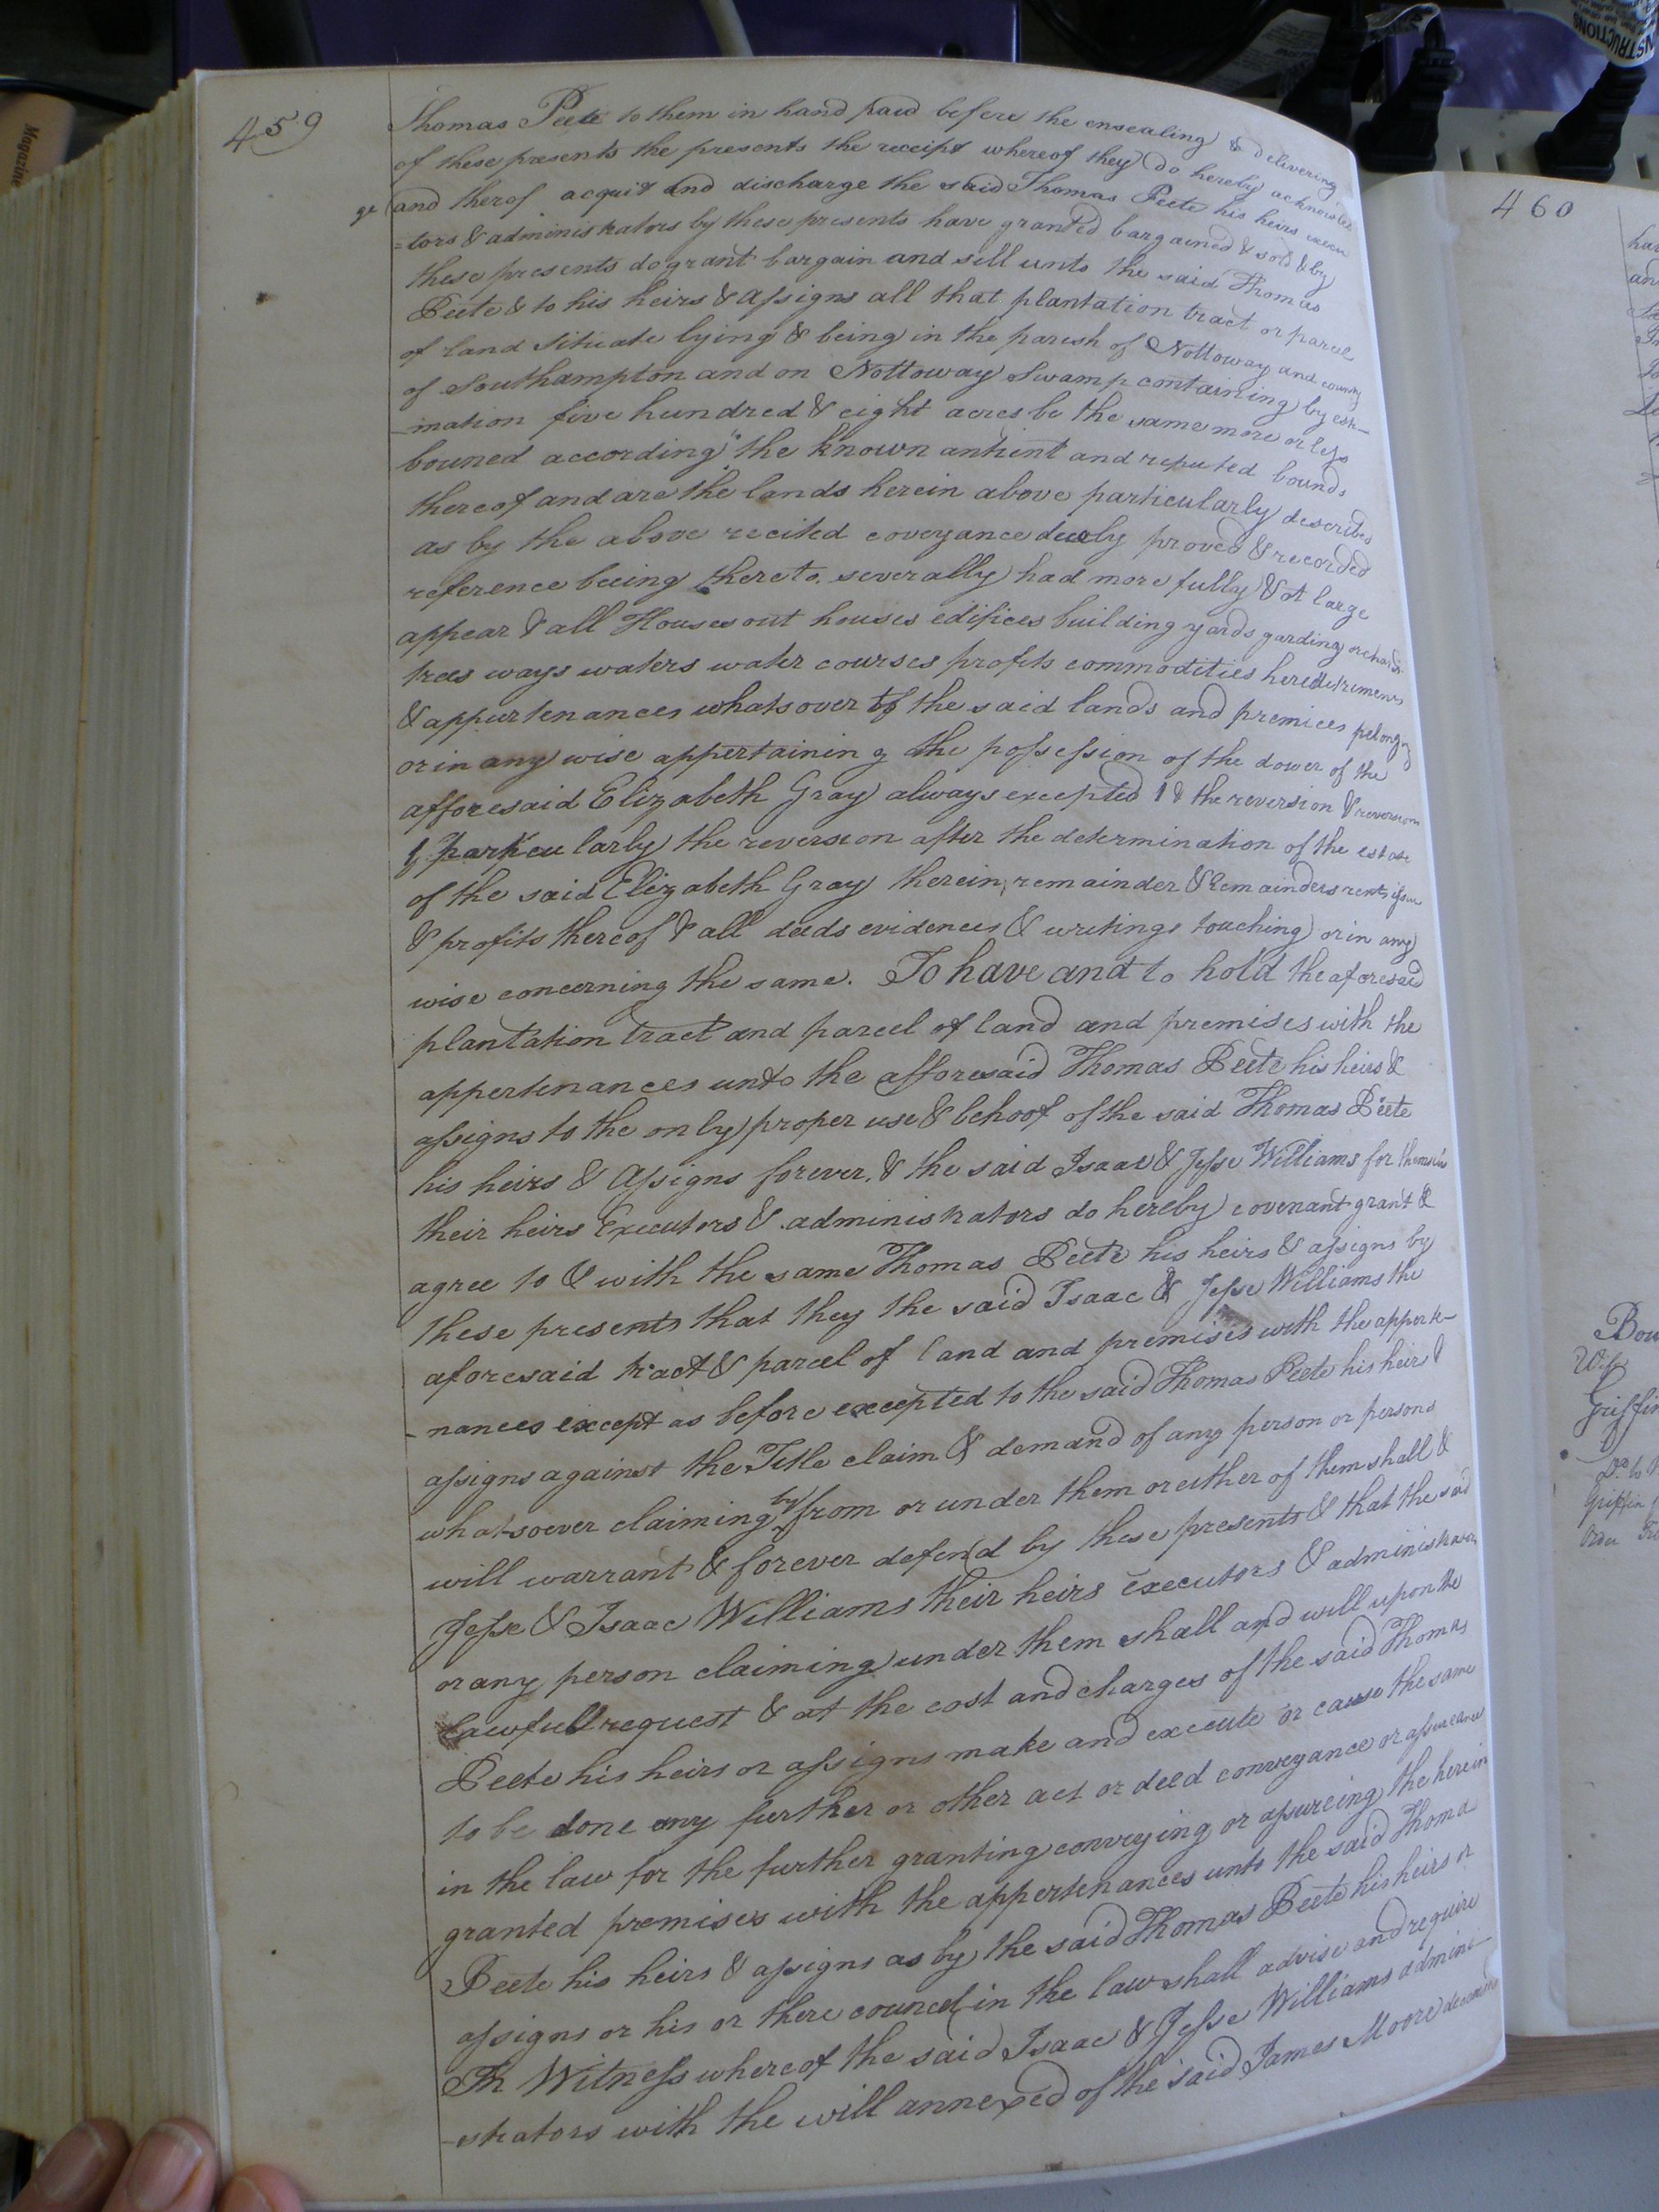 459
Thomas Peete to them in hand paid before the ensealing & delivering
of these presents the presents the receipt whereof they do hereby acknowled
ge and therof acquit and discharge the said Thomas Peete his heirs execu
=tors & administrators by these presents have granted bargained & sold & by
these presents do grant bargain and sell unto the said Thomas
Peete & to his heirs & assigns all that plantation tract or parcel
of land situate lying & being in the parish of Nottoway and county
of Southampton and on Nottoway Swamp containing by esti-
-mation five hundred & eight acres be the same more or less
bouned according to the known antient and reputed bounds
thereof and are the lands herein above particularly described
as by the above recited coveyance duely proved & recorded
reference being thereto severally had more fully & at large
appear & all Houses out houses edifices building yards garding orchards
trees ways waters water courses profits commodities
& appurtenances whatsover to the said lands and premices
or in any wise appertaining the possession of the dower of the
afforesaid Elizabeth Gray always excepted & the reversion & reversions
& particularly the reversion after the determination of the estate
of the said Elizabeth Gray therein, remainder & remainders rents issues
& profits thereof & all deeds evidences & writings touching or in any
wise concerning the same. To have and to hold the aforesaid
plantation tract and parcel of land and premises with the
appertenances unto the afforesaid Thomas Peete his heirs &
assigns to the only proper use & behoof of the said Thomas Peete
his heirs & assigns forever. & the said Isaac & Jesse Williams for themselves
their heirs Executors & administrators do hereby covenant grant &
agree to & with the same Thomas Peete his heirs & assigns by
these presents that they the said Isaac & Jesse Williams the
aforesaid tract & parcel of land and premises with the apperte-
-nances except as before excepted to the said Thomas Peete his heirs &
assigns against the Title claim & demand of any person or persons
whatsoever claiming by from or under them or either of them shall &
will warrant & forever defend by these presents & that the said
Jesse & Isaac Williams their heirs executors & administrators
or any person claiming under them shall and will upon the
lawfull request & at the cost and charges of the said Thomas
Peete his heirs or assigns make and execute or cause the same
to be done any further or other act or deed conveyance or assureance
in the law for the further granting conveying or assureing the herein
granted premises with the appertenances unto the said Thomas
Peete his heirs & assigns as by the said Thomas Peete his heirs or
assigns or his or there councel in the law shall advise and require
In Witness whereof the said Isaac & Jesse Williams admini-
-strators with the will annexed of the said James Moore deceased
460
Bou
Wife
Griffin
Griffin
Order
Magazine
INSTRUCTIONS